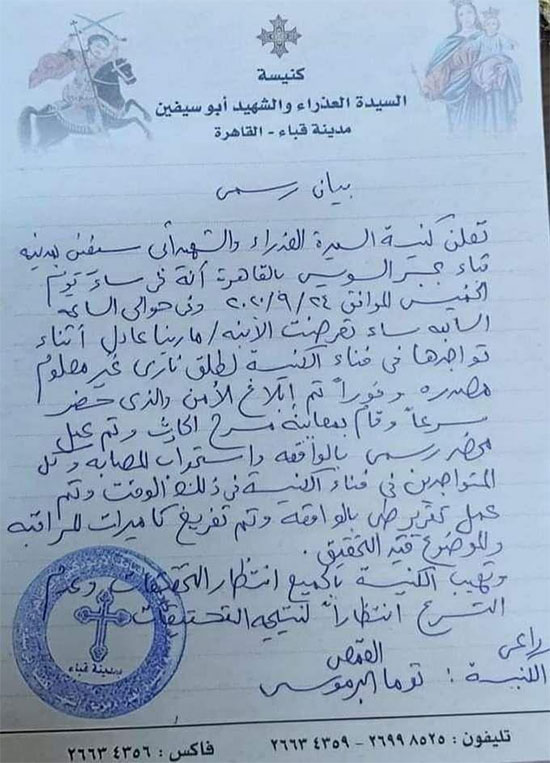 كنيسة
السيدة العذراء والشهيد أبو سيفين
مدينة قباء - القاهرة
بيان رسمى
تعلن كنيسة السيدة العذراء والشهيد أبى سيفين بمدينة
قباء بجسر السويس بالقاهرة أنة فى مساء يوم
الخميس الموافق ٢٠٢٠/٩/٢٤ وفى حوالى الساعة
السابعة مساء تعرضت الأبنه / مارينا عادل أثناء
تواجدها فى فناء الكنيسة لطلق نارى غير معلوم
مصدره وفوراً تم إبلاغ الأمن والذى حضر
سريعاً وقام بمعاينة مسرح الحادث وتم عمل
محضر رسمى بالواقعه واستجواب المصابه وكل
المتواجدين فى فناء الكنيسة فى ذلك الوقت وتم
عمل تقرير طبى بالواقعه وتم تفريغ كاميرات المراقبه
والموضوع قيد التحقيق .
وتهيب الكنيسة بالجميع انتظار التحقيقات وعدم
التسرع انتظاراً لنتيجه التحقيقات
راعى القمص
الكنيسة : توما البرموسى
بمدينة قباء
تليفون : ٢٦٩٩ ٨٥٢٥ - ٢٦٦٣ ٤٣٥٩ فاكس : ٢٦٦٣ ٤٣٥٦